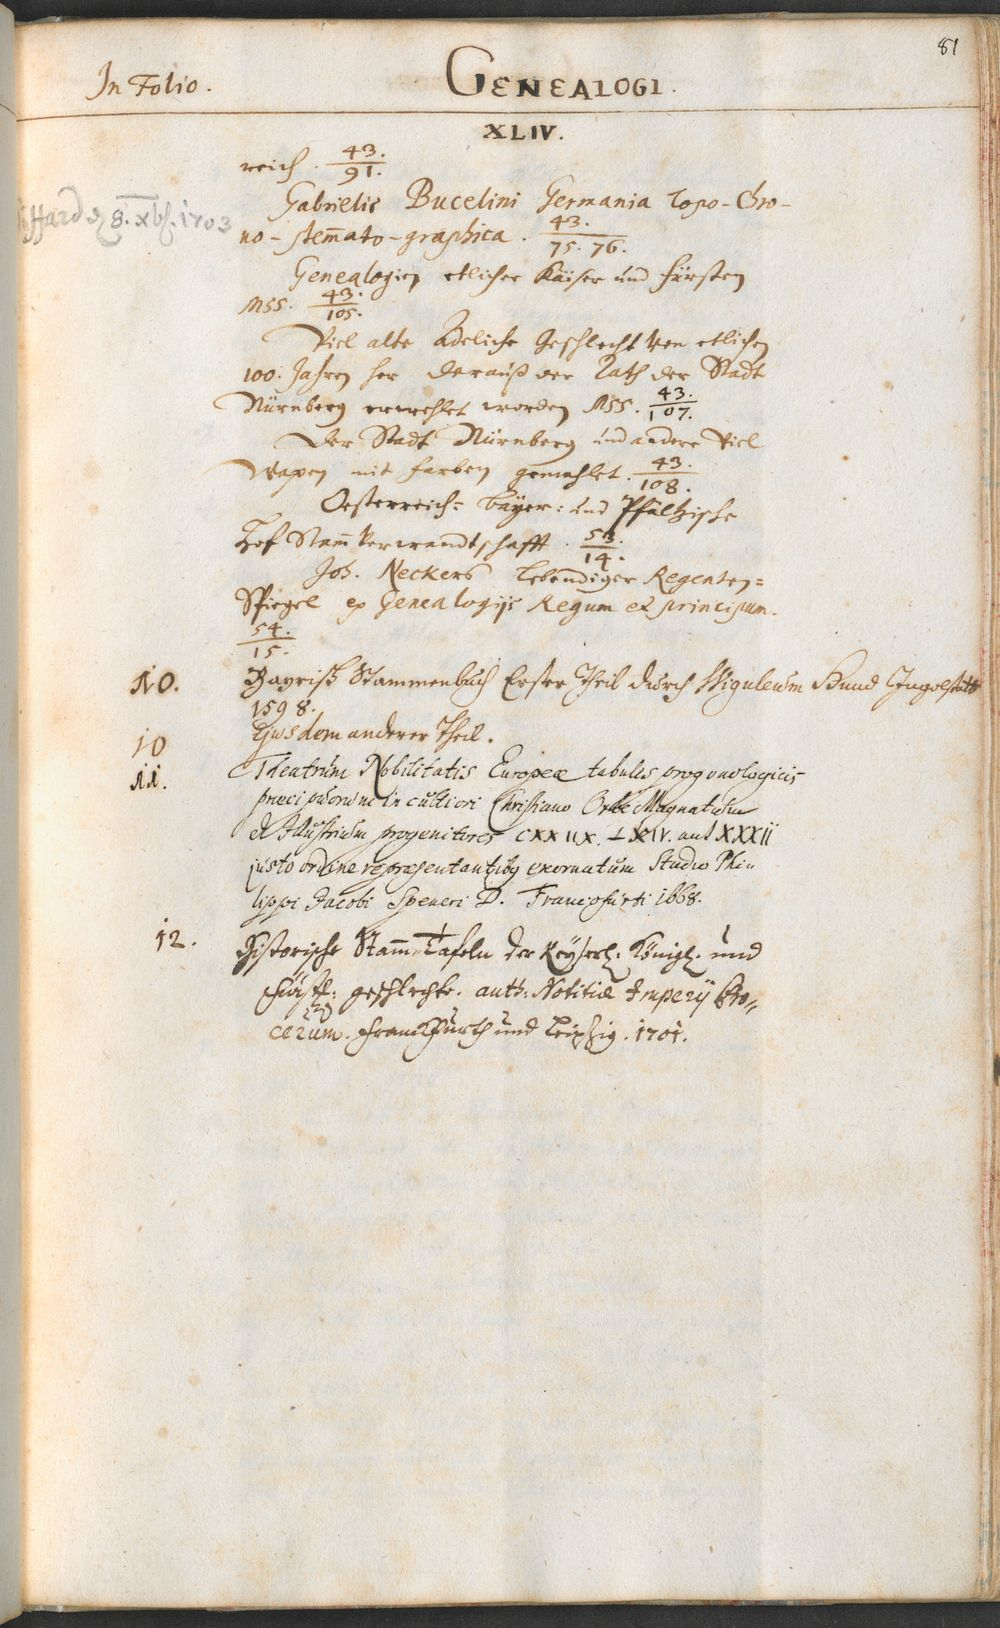 81
In Folio.
GENEALOGI.
XLIV.
reich. 43./91.
Gabrielis Bucelini Germania Topo-Chro-
no-stem̄ato-graphica. 43./75. 76.
8. xbr. 1703
Genealogien etlicher Käiser und fürsten
MSS. 43./105.
Viel alte Adeliche Geschlecht von etlichen
100. Jahren her darauß der Rath der Stadt
Nürnberg erwehlet worden MSS. 43./107.
Der Stadt Nürnberg und andere Viel
Wapen mit farben gemahlet. 43./108.
Oesterreich: Bäyer: und Pfältzische
Hof Stam̄ Verwandtschafft. 53./14.
Joh. Neckers Lebendiger Regenten=
Spiegel ex Genealogijs Regum et principum.
54./15.
10. Bayrisch Stammenbuch Erster Theil durch Wiguleum Hund Ingolstatt
1598.
10 Ejusdem anderer Theil.
11. Theatrum Nobilitatis Europeæ tabulis progonologicis
præcipuorum in cultiori Christiano Orbe Magnatum
et Illustrium progenitores CXXIIX. LXIV. aut XXXII
justo ordine repræsentantibus exornatum Studio Phi-
lippi Jacobi Speneri D. Francofurti 1668.
12. Historische Stam̄-Tafeln der Keyserl. Königl. und
Fürstl: geschlechte. auth: Notitiæ Imperij Pro-
cerum. Franckfurth und Leipzig. 1701.